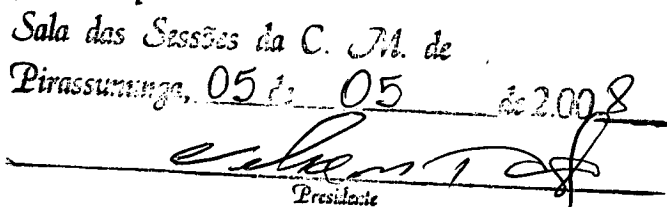 Sala das Sessões da C. M. de
Pirassununga, 05 de 05 de 2.008
Presidente